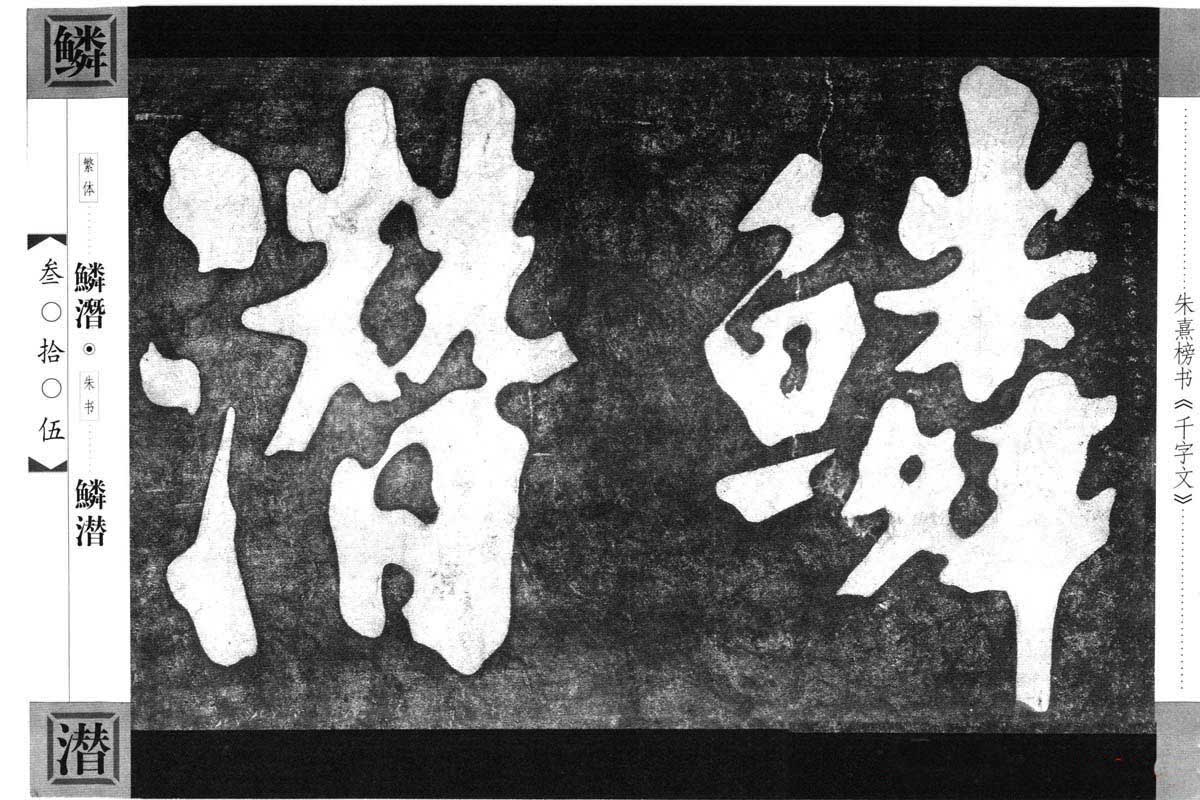 朱熹榜书《千字文》
鳞潜
鳞
繁体
鱗潛
朱书
鳞潜
叁〇拾〇伍
潜